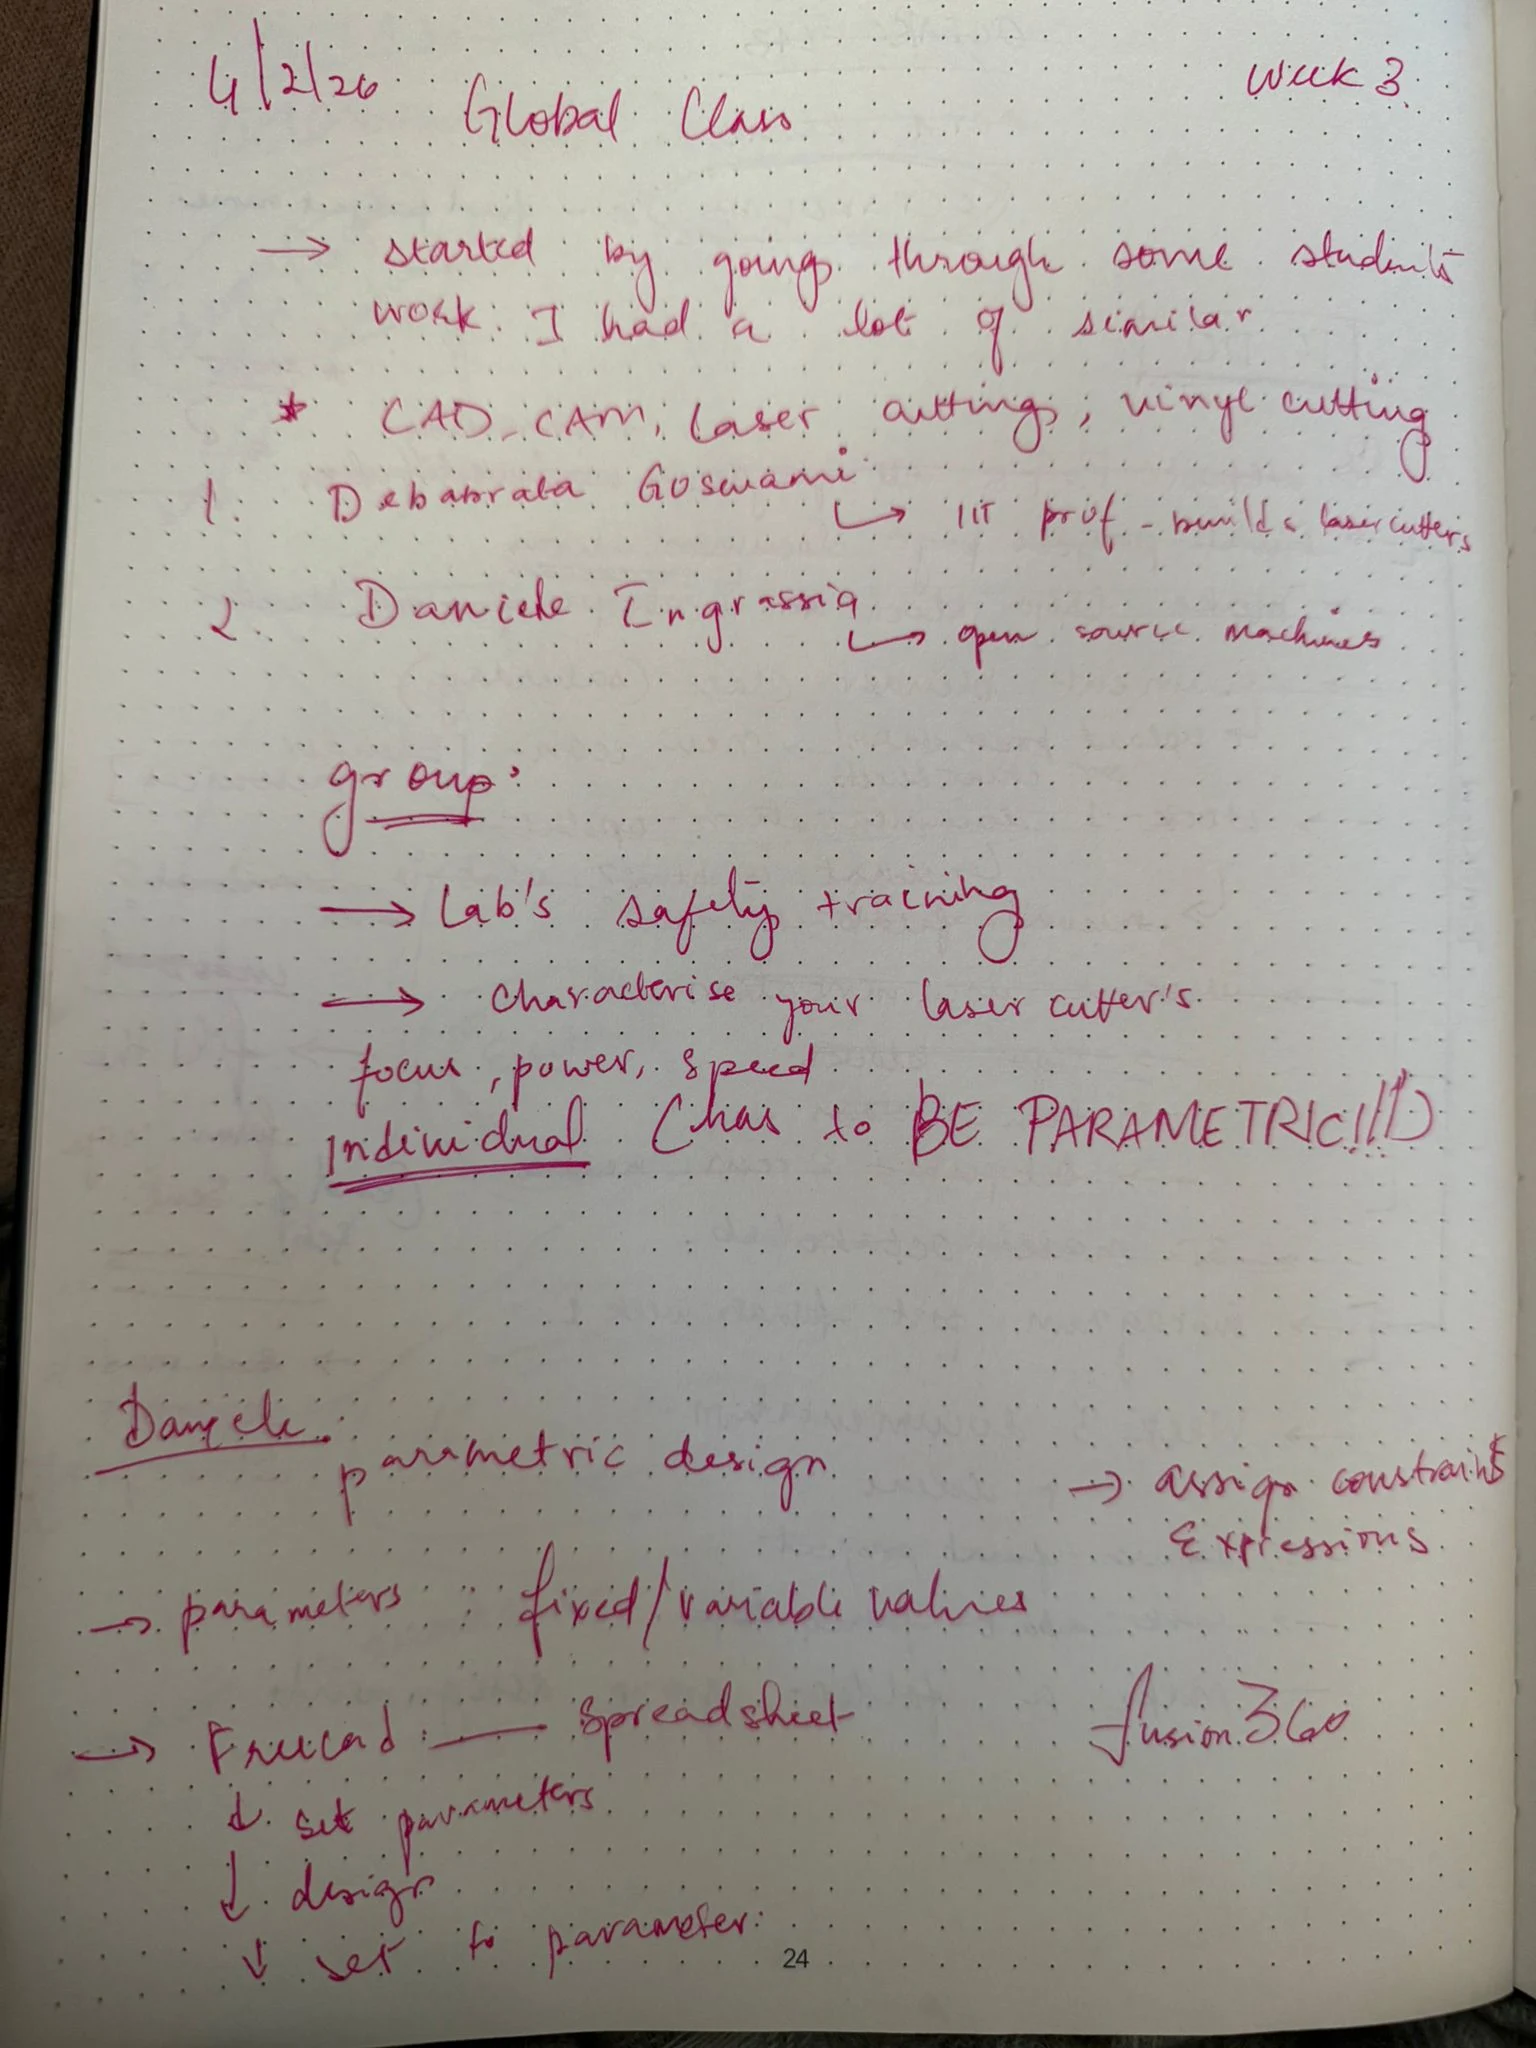 4/2/26
Week 3
Global Class
→ started by going through some students
work. I had a lot of similar
* CAD, CAM, laser cutting, vinyl cutting
1. Debabrata Goswami
↳ IIT prof - builds laser cutters
2. Daniele Ingrassia
↳ open source machines
group:
→ Lab's safety training
→ characterise your laser cutter's
focus, power, speed
individual (has to BE PARAMETRIC!!!)
Daniele
parametric design → assign constraints
Expressions
→ parameters : fixed/variable values
→ Freecad — spreadsheet fusion 360
↓ set parameters
↓ design
↓ set to parameter.
24